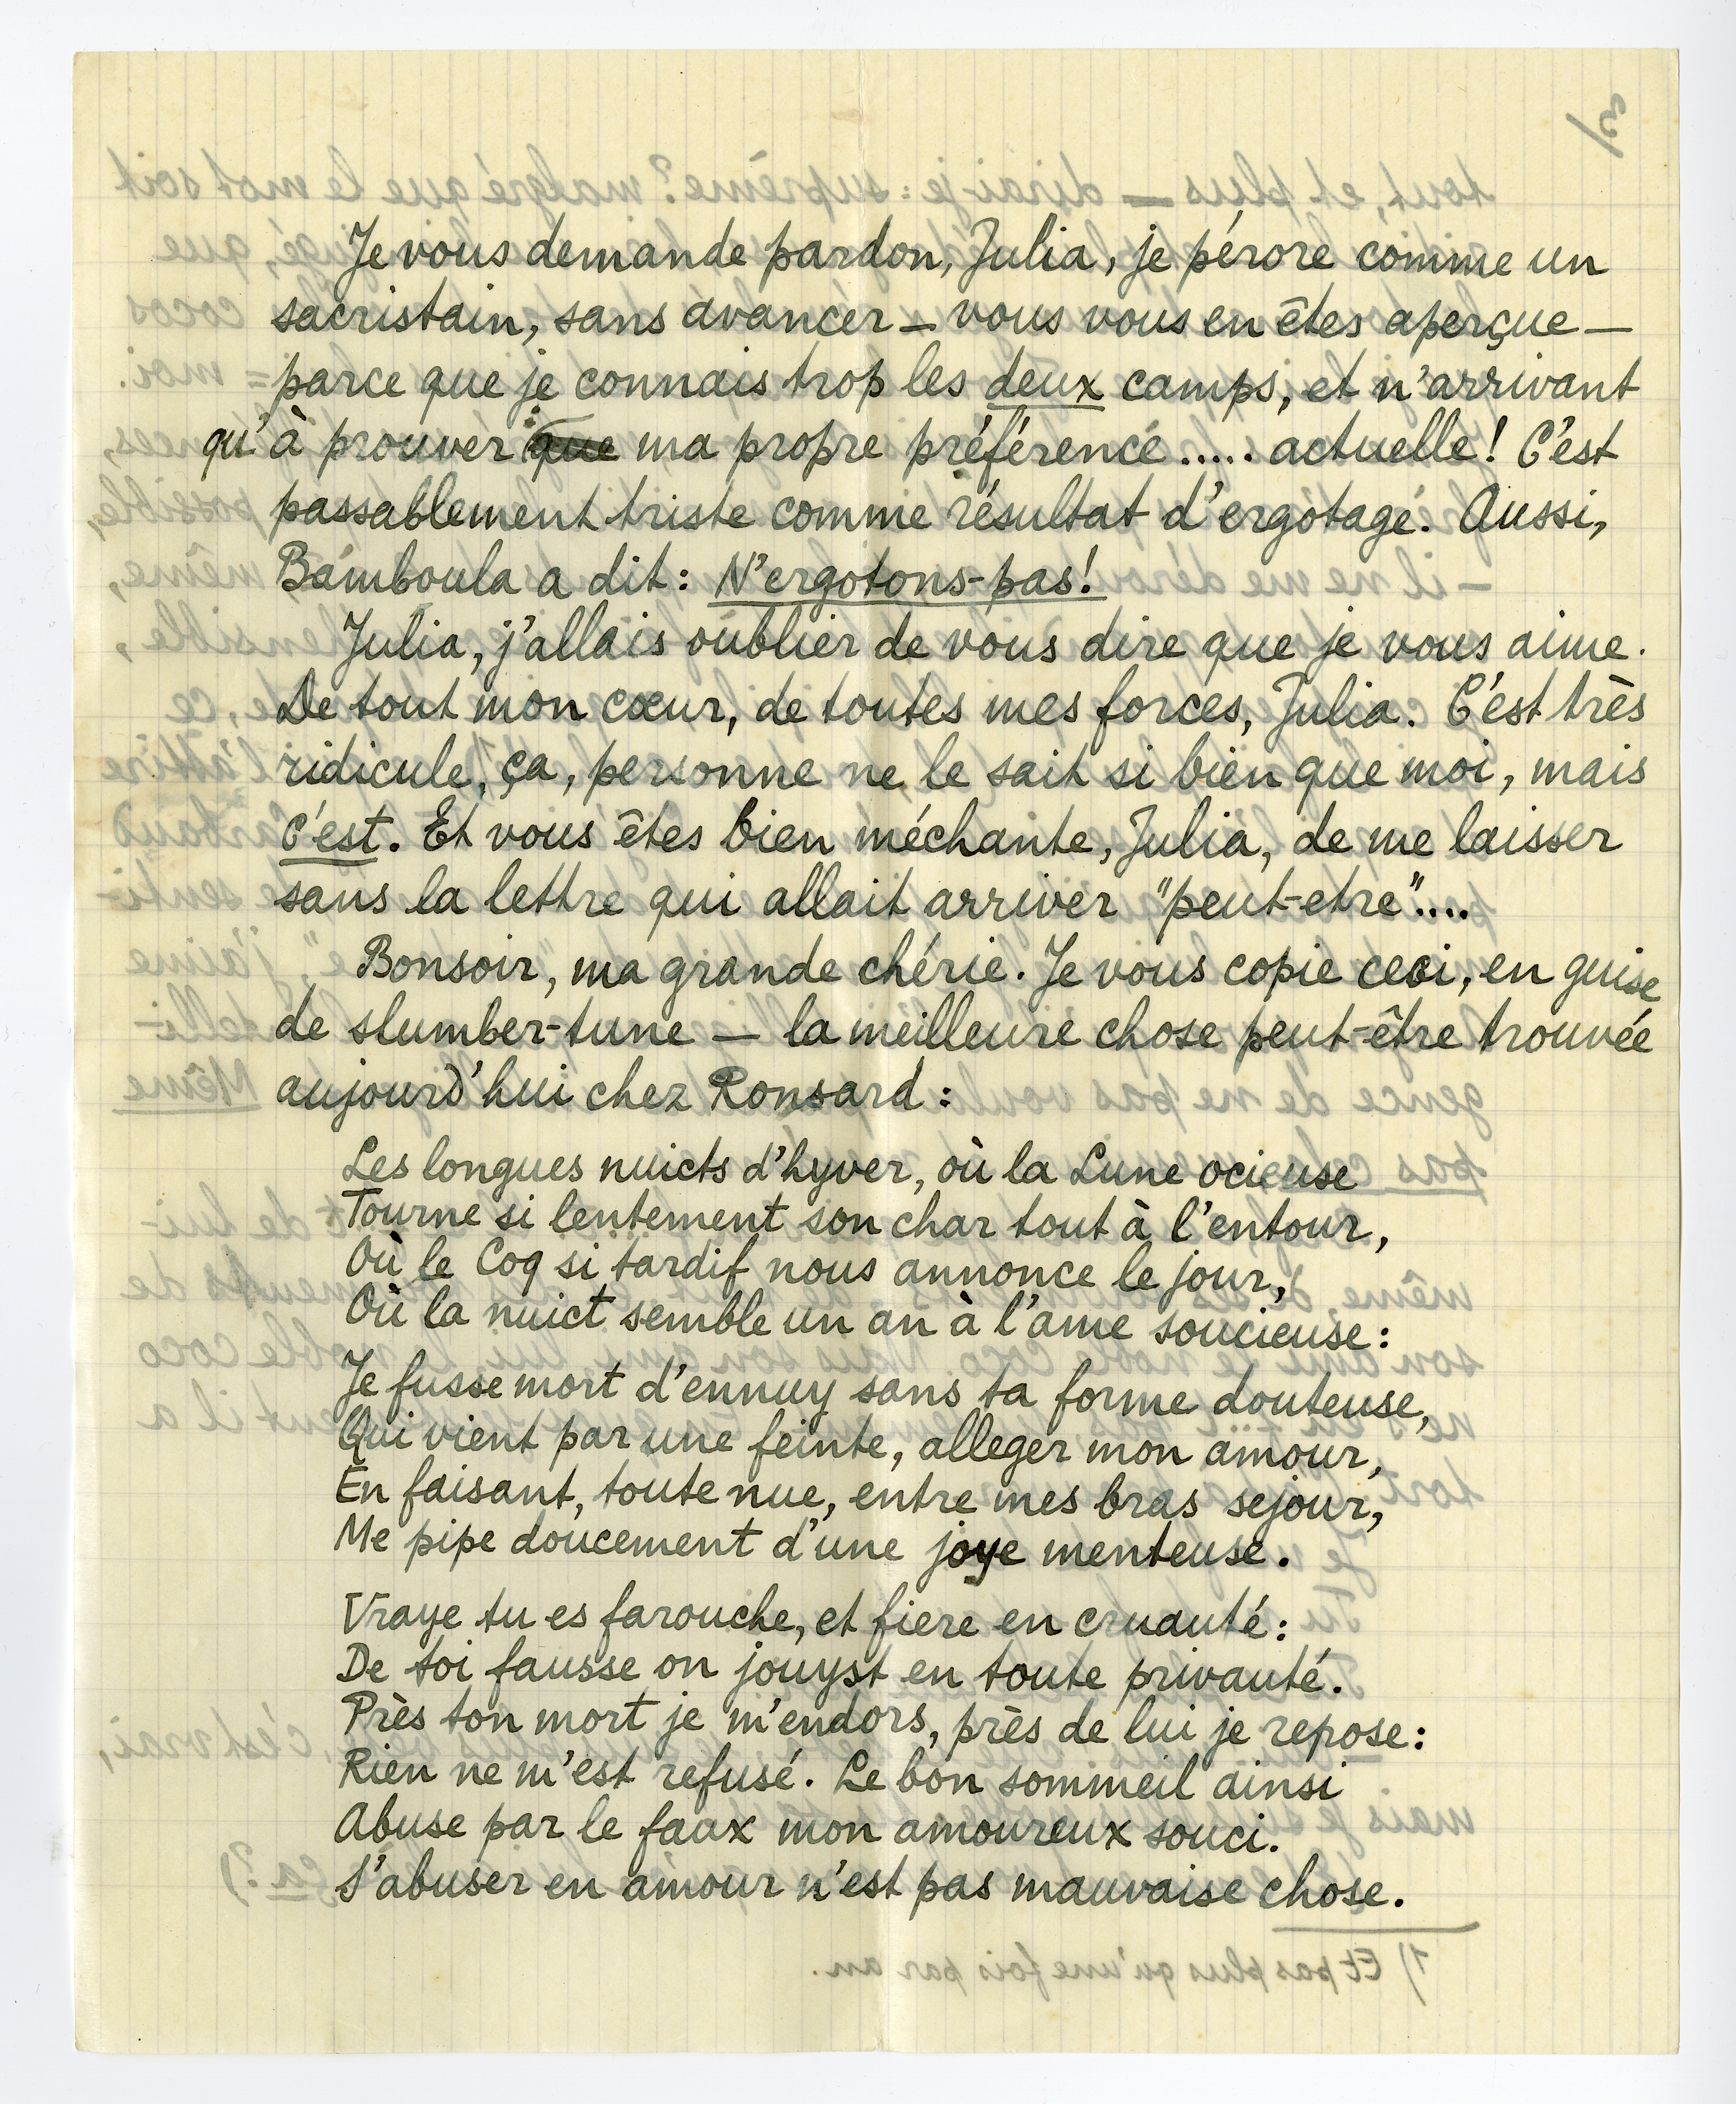 Je vous demande pardon, Julia, je pérore comme un
sacristain, sans avancer — vous vous en êtes aperçue —
parce que je connais trop les deux camps, et n'arrivant
qu'à prouver que ma propre préférence..... actuelle! C'est
passablement triste comme résultat d'ergotage. Aussi,
Bamboula a dit: N'ergotons-pas!
Julia, j'allais oublier de vous dire que je vous aime.
De tout mon cœur, de toutes mes forces, Julia. C'est très
ridicule, ça, personne ne le sait si bien que moi, mais
c'est. Et vous êtes bien méchante, Julia, de me laisser
sans la lettre qui allait arriver "peut-etre"....
Bonsoir, ma grande chérie. Je vous copie ceci, en guise
de slumber-tune — la meilleure chose peut-être trouvée
aujourd'hui chez Ronsard:
Les longues nuicts d'hyver, où la Lune ocieuse
Tourne si lentement son char tout à l'entour,
Où le Coq si tardif nous annonce le jour,
Où la nuict semble un an à l'ame soucieuse:
Je fusse mort d'ennuy sans ta forme douteuse,
Qui vient par une feinte, alleger mon amour,
En faisant, toute nue, entre mes bras sejour,
Me pipe doucement d'une joye menteuse.
Vraye tu es farouche, et fiere en cruauté:
De toi fausse on jouyst en toute privauté.
Près ton mort je m'endors, près de lui je repose:
Rien ne m'est refusé. Le bon sommeil ainsi
Abuse par le faux mon amoureux souci.
S'abuser en amour n'est pas mauvaise chose.